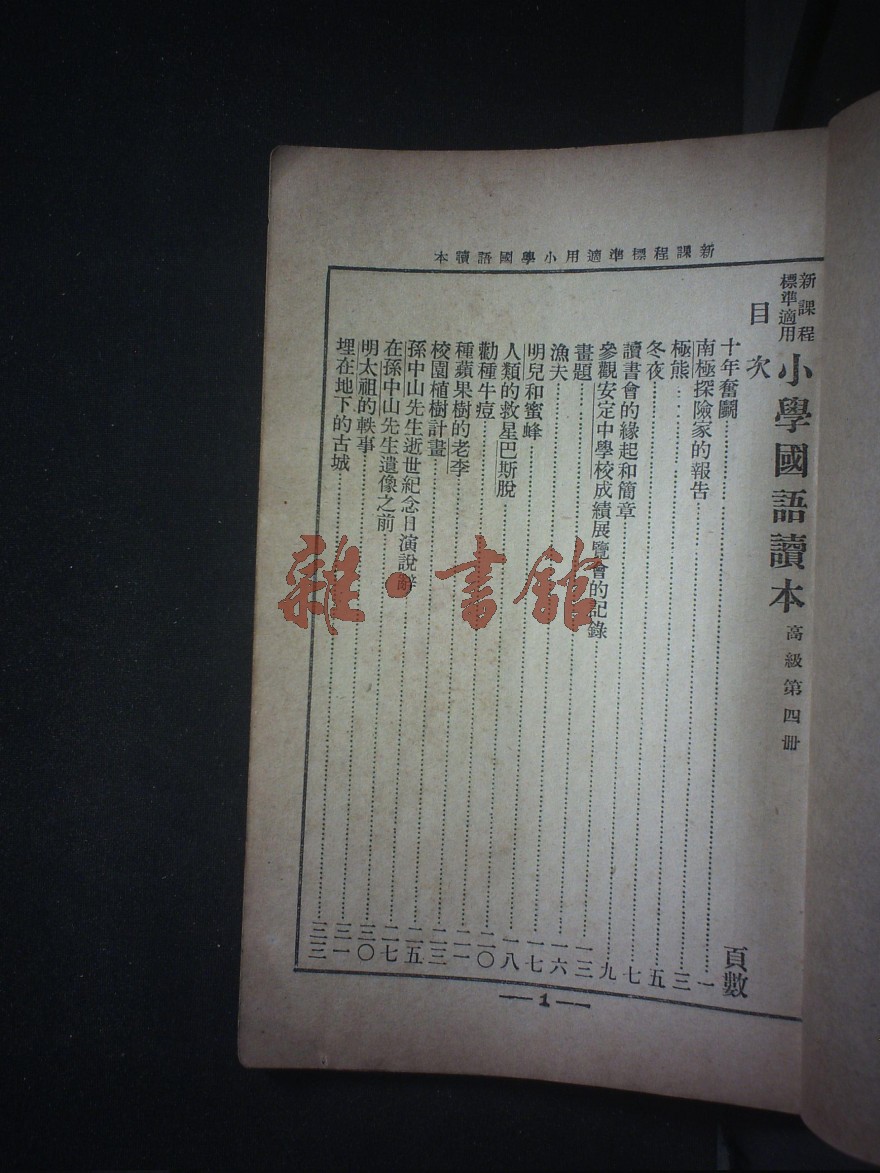 新課程標準適用小學國語讀本
新課程標準適用
小學國語讀本 高級第四冊
目次 頁數
十年奮鬥……一
南極探險家的報告……三
極熊……五
冬夜……七
讀書會的緣起和簡章……九
參觀安定中學校成績展覽會的記錄……一三
畫題……一六
漁夫……一七
明兒和蜜蜂……一八
人類的救星巴斯脫……二〇
勸種牛痘……二一
種蘋果樹的老李……二三
校園植樹計畫……二五
孫中山先生逝世紀念日演說辭……二七
在孫中山先生遺像之前……三〇
明太祖的軼事……三一
埋在地下的古城……三三
— 1 —
雜·書館